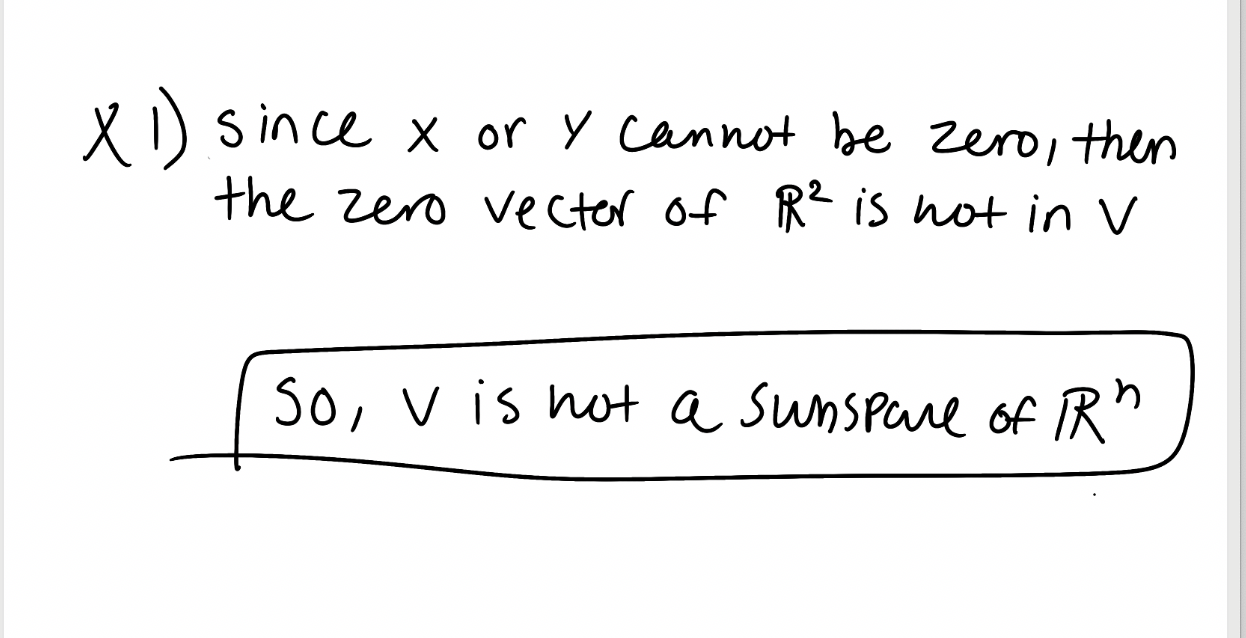 X 1) since x or y cannot be zero, then
the zero vector of ℝ² is not in V
So, V is not a sunspace of ℝⁿ